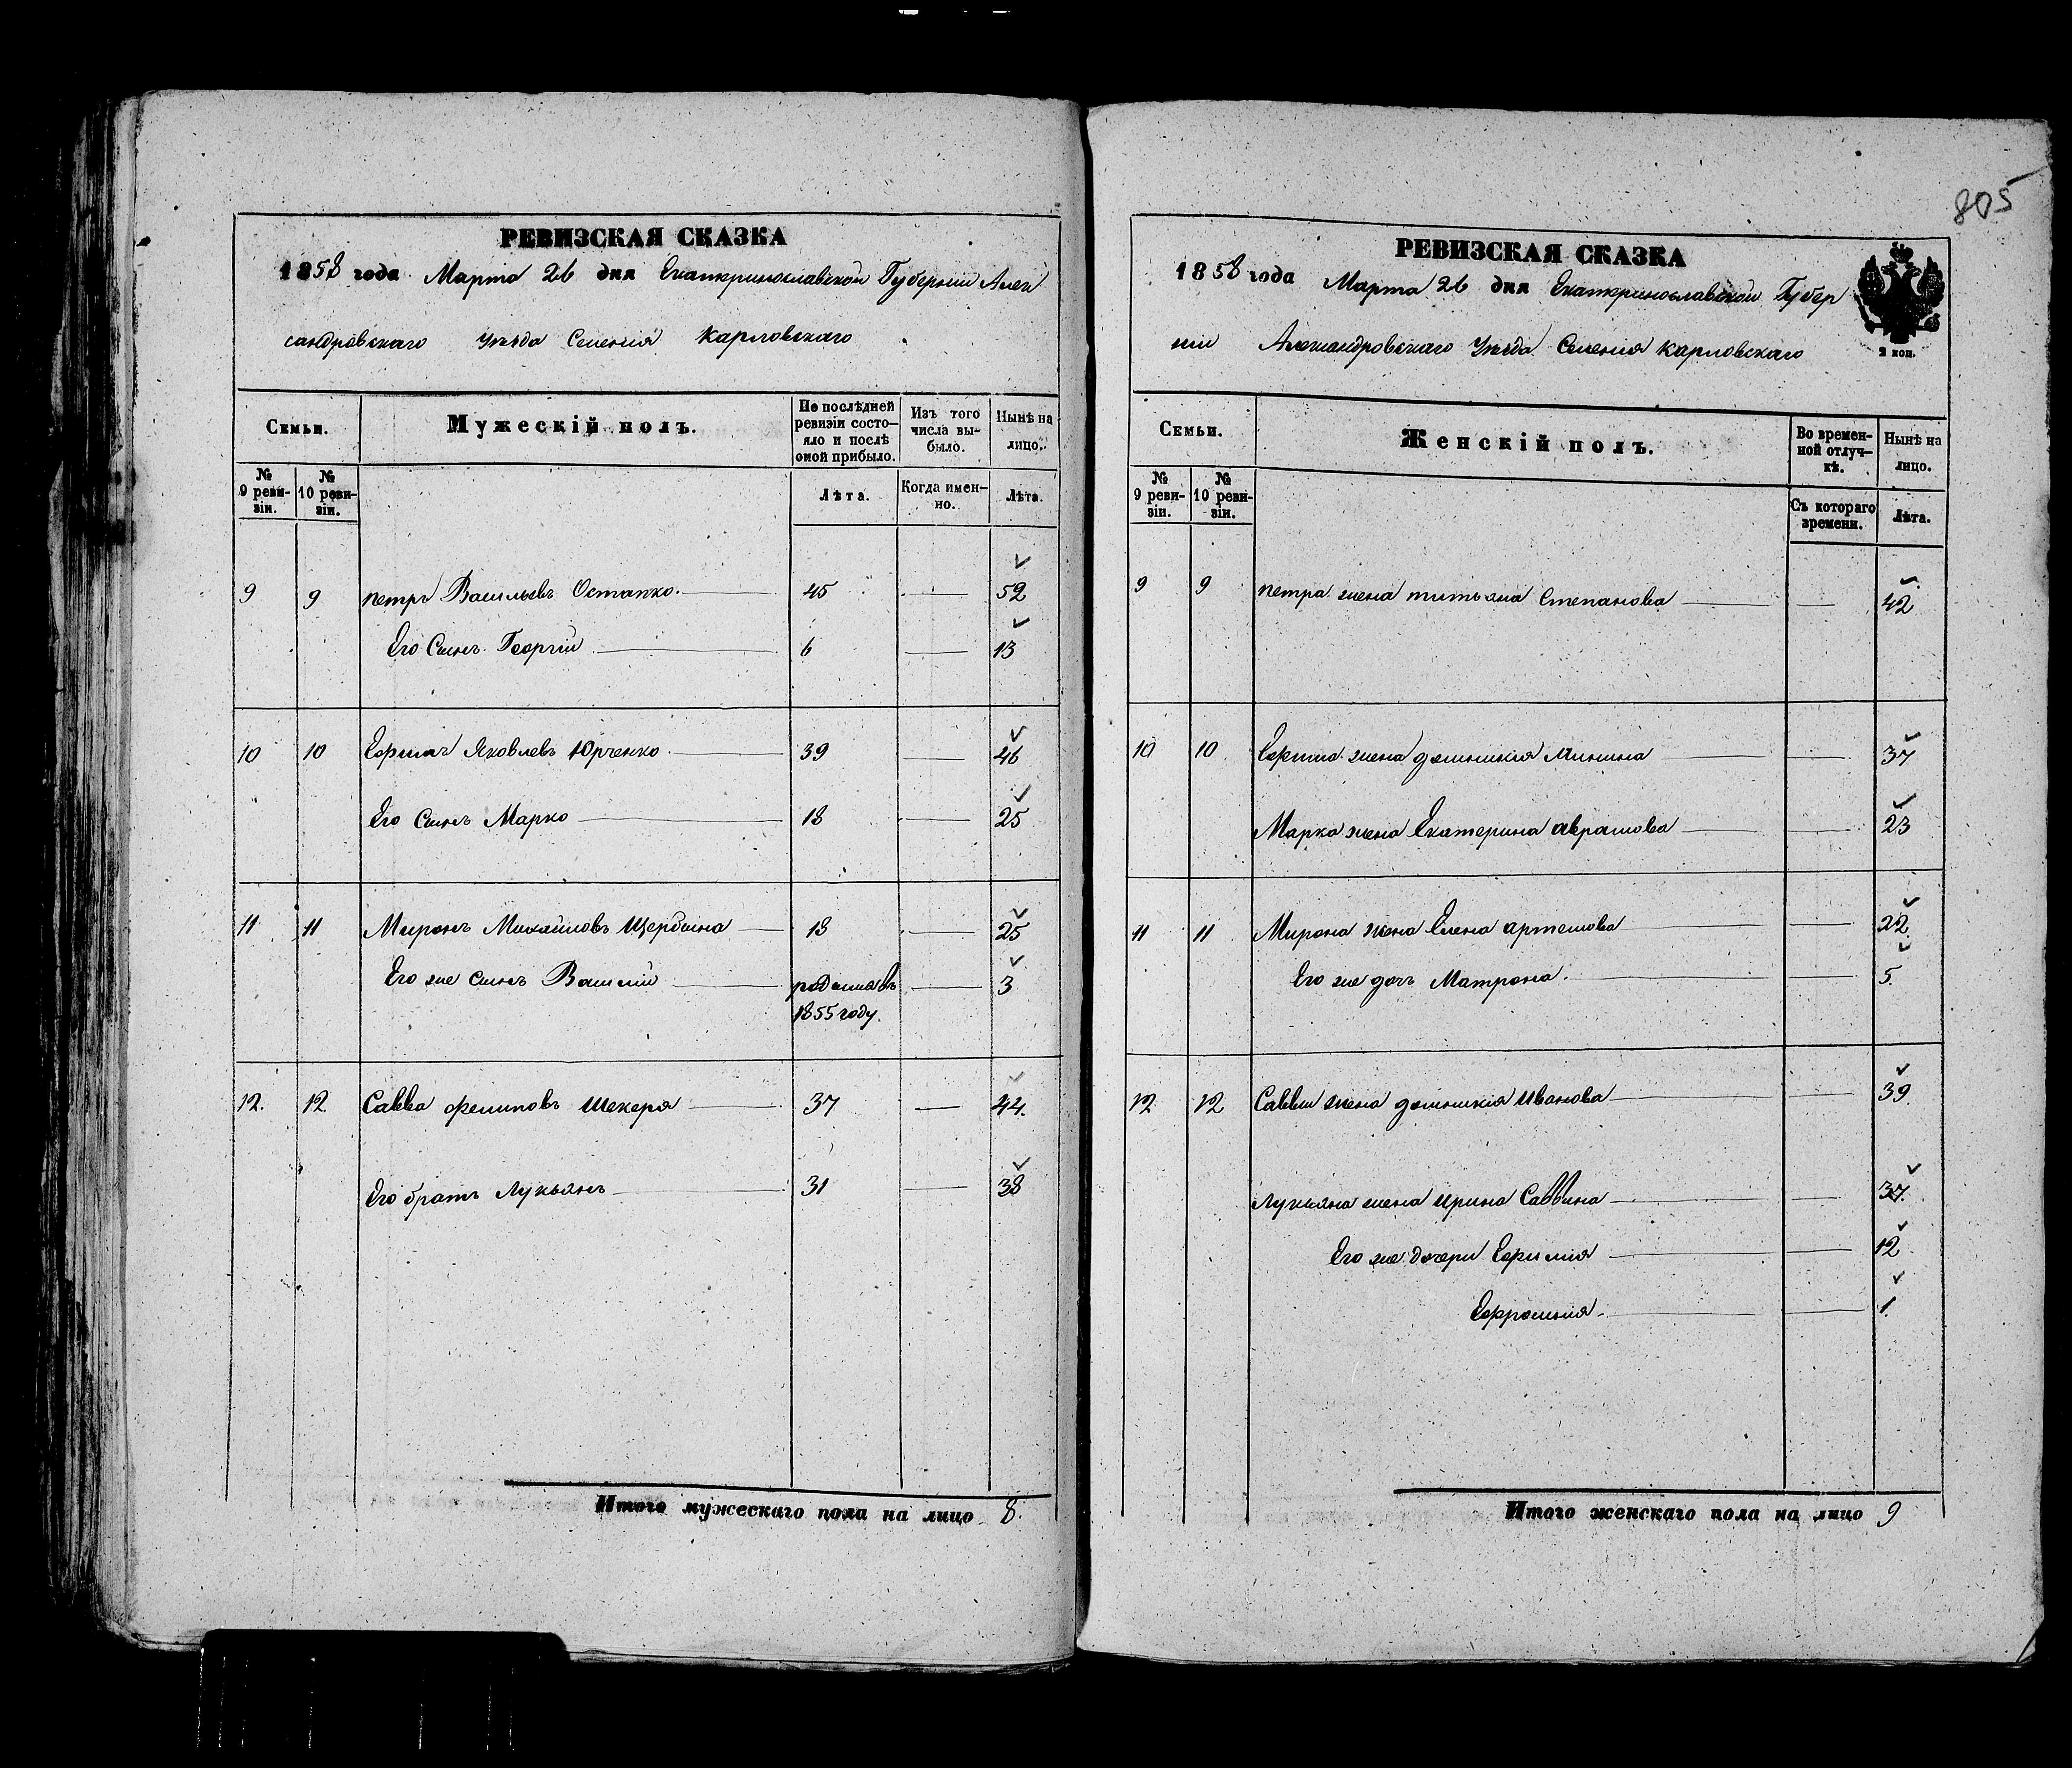 805
РЕВИЗСКАЯ СКАЗКА
1858 года Марта 26 дня Екатеринославской Губернии Алек
сандровскаго Уѣзда Селения Карловскаго
Семьи. Мужескій полъ. По послѣдней ревизіи состо-яло и послѣ оной прибыло. Изъ того числа вы-было. Нынѣ на лицо.
№ 9 реви-зіи. № 10 реви-зіи. Лѣта. Когда имен-но. Лѣта.
9 9 петръ Васильевъ Остапко. 45 52
Его Сынъ Георгій 6 13
10 10 Ефимъ Яковлевъ Юрченко 39 46
Его Сынъ Марко 18 25
11 11 Миронъ Михайловъ Щербина 18 25
Его же сынъ Василій родился въ 3
1855 году.
12. 12 Савва филиповъ Шекеря 37 44.
Его братъ Лукьянъ 31 38
Итого мужескаго пола на лицо 8.
РЕВИЗСКАЯ СКАЗКА
1858 года Марта 26 дня Екатеринославской Губер
нии Александровскаго Уѣзда Селения Карловскаго
2 коп.
Семьи. Женскій полъ. Во времен-ной отлуч-кѣ. Нынѣ на лицо.
№ 9 реви-зіи. № 10 реви-зіи. Съ котораго времени. Лѣта.
9 9 петра жена титьяна Степанова 42
10 10 Ефима жена домникия Минина 37
Марка жена Екатерина аврамова 23
11 11 Мирона жена Елена артемова 22
Его же дочь Матрона. 5.
12 12 Саввы жена домникия Иванова 39
Лукьяна жена ирина Саввина 37.
Его же дочери Ефимия 12
Ефросиния 1
Итого женскаго пола на лицо 9